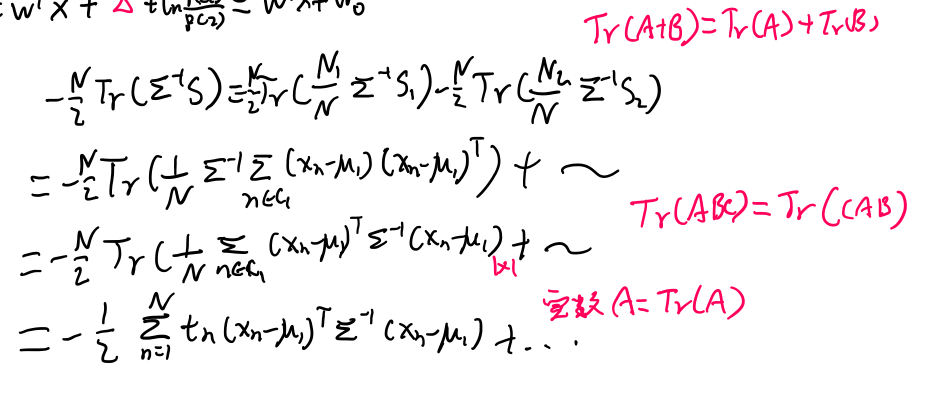 = wᵀx + Δ + ln p(c₂) = wᵀx + w₀
Tr(A+B)=Tr(A)+Tr(B)
-N/2 Tr(Σ⁻¹S) = -N/2 Tr(N₁/N Σ⁻¹S₁) - N/2 Tr(N₂/N Σ⁻¹S₂)
= -N/2 Tr(1/N Σ⁻¹ Σ_{n∈C₁} (xₙ-μ₁)(xₙ-μ₁)ᵀ) + ~
Tr(ABC)=Tr(CAB)
= -N/2 Tr(1/N Σ_{n∈C₁} (xₙ-μ₁)ᵀ Σ⁻¹(xₙ-μ₁) + ~
1x1
实数 A=Tr(A)
= -1/2 Σ_{n=1}^{N} tₙ(xₙ-μ₁)ᵀ Σ⁻¹ (xₙ-μ₁) + ...